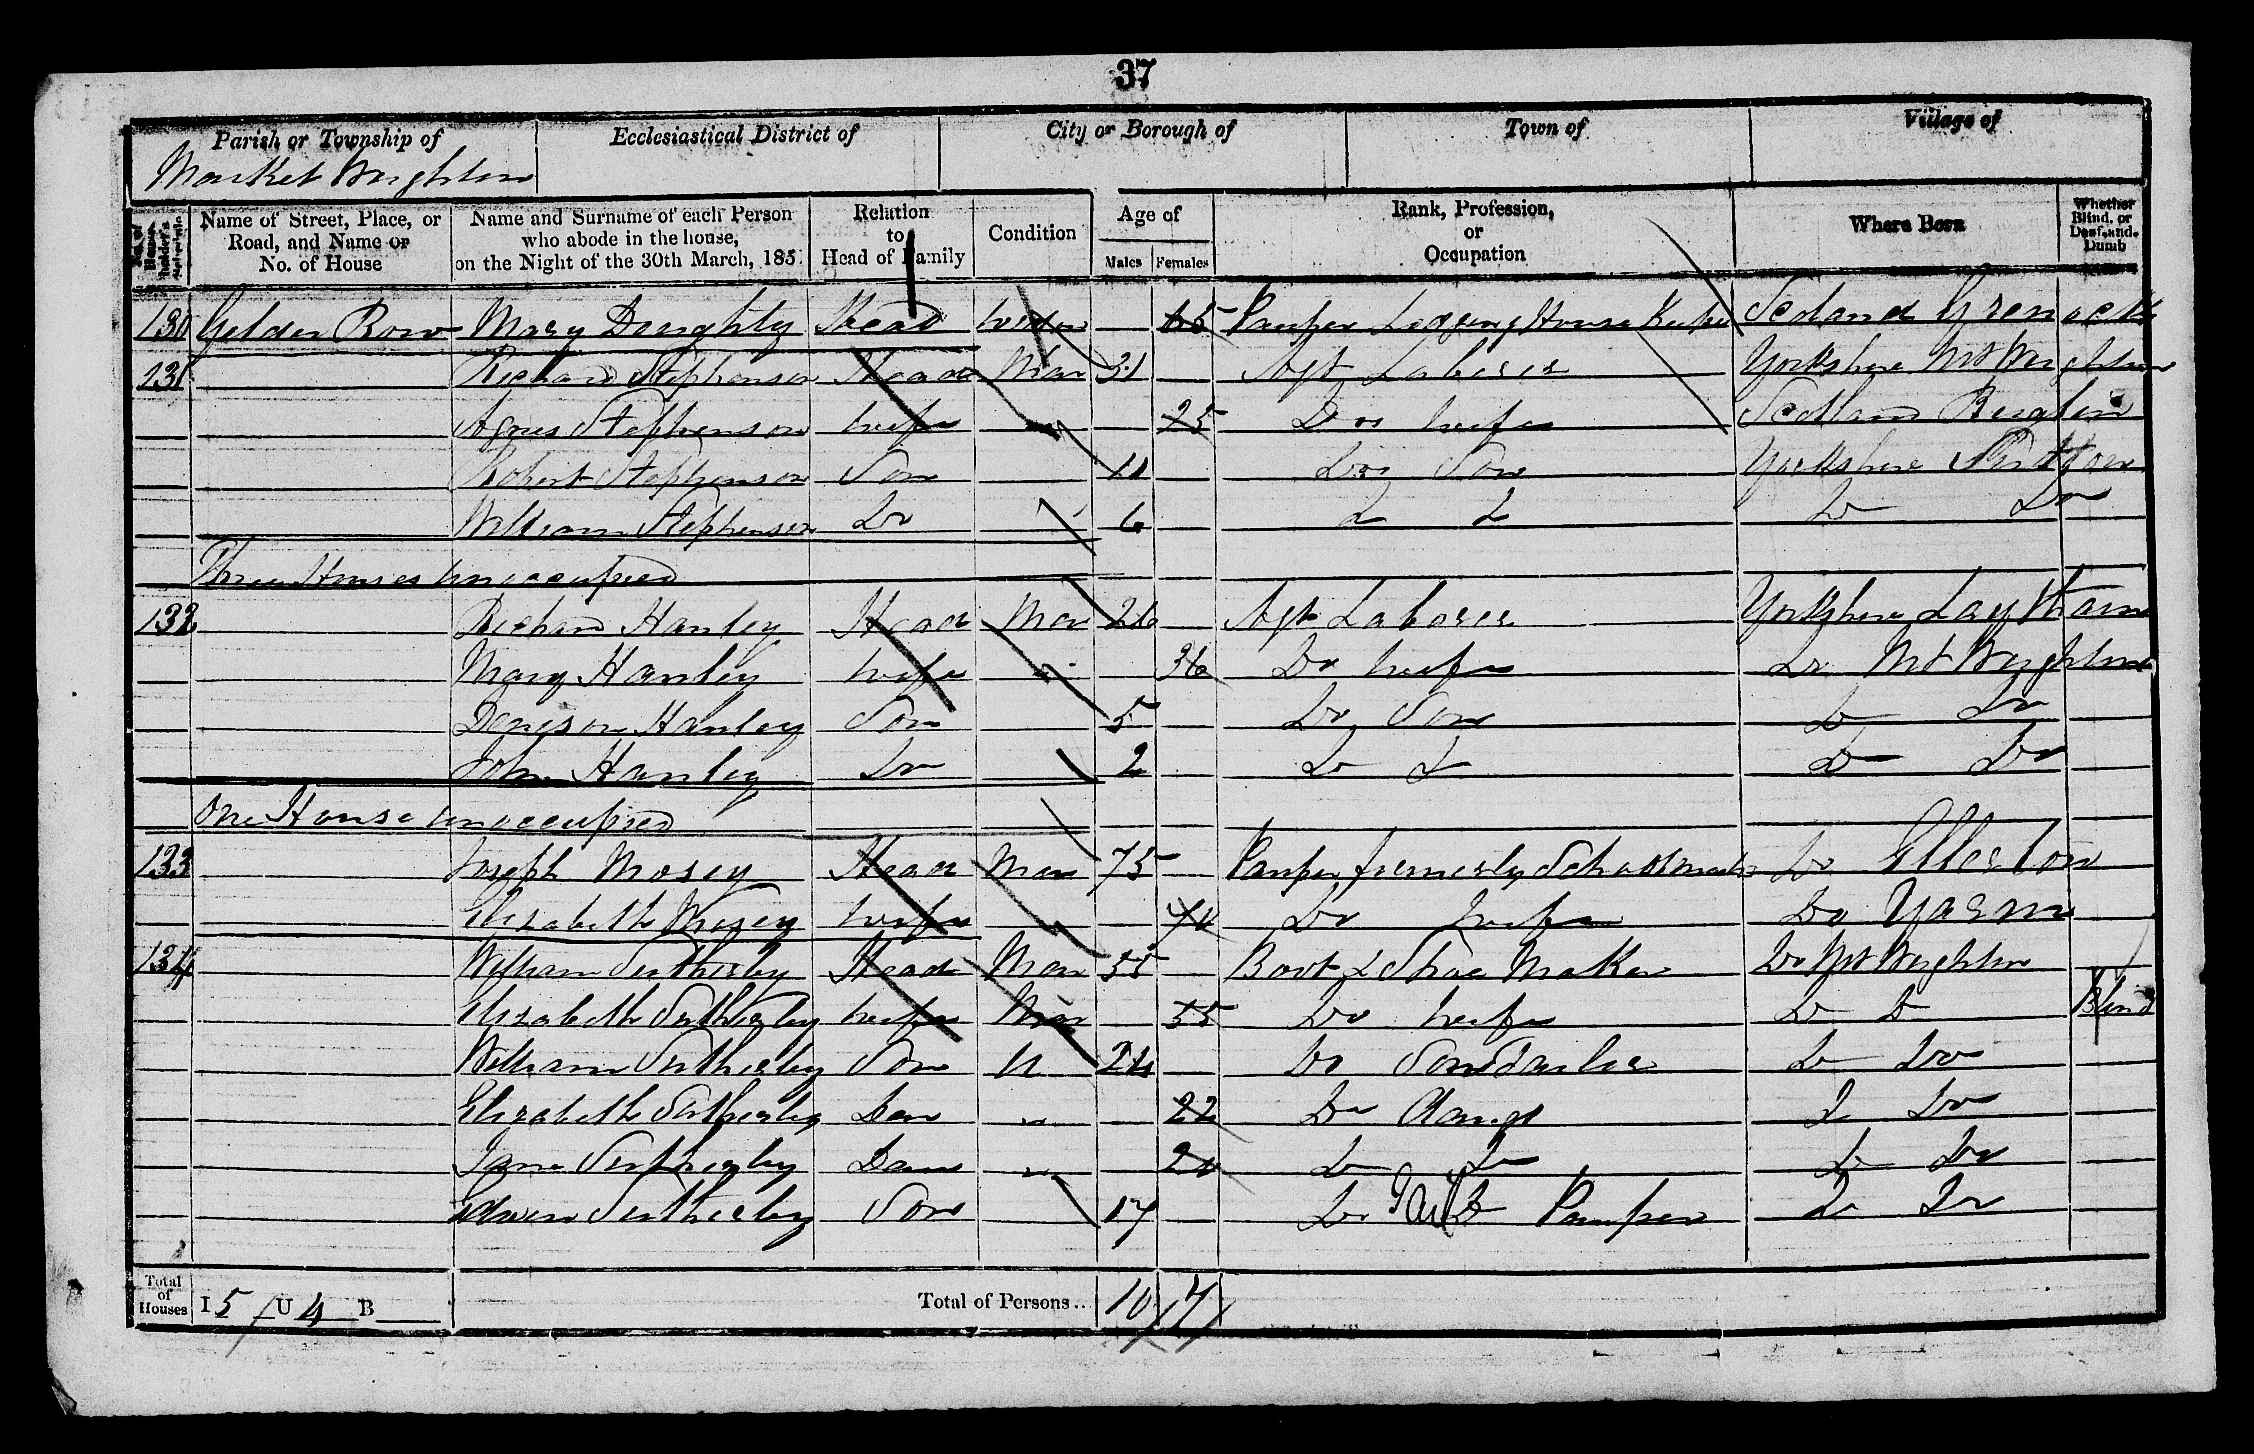 37
Parish or Township of Ecclesiastical District of City or Borough of Town of Village of
Market Weighton
No. of House-holder's Schedule Name of Street, Place, or Road, and Name or No. of House Name and Surname of each Person who abode in the house, on the Night of the 30th March, 185 Relation to Head of Family Condition Age of Males Females Rank, Profession, or Occupation Where Born Whether Blind, or Deaf-and-Dumb
130 Gelder Row Mary Doughty Head Widow 65 Pauper Lodging House Keeper Scotland Grenock
131 Richard Stephenson Head Mar 31 Agt Laborer Yorkshire Mt Weighton
Agnes Stephenson wife " 25 Do wife Scotland
Robert Stephenson Son 11 Do Son Yorkshire
William Stephenson Do 6 Do Do Do Do
Three Houses unoccupied
132 Richard Hanley Head Mar 26 Agt Laborer Yorkshire Laytham
Mary Hanley wife " 36 Do wife Do Mt Weighton
Denison Hanley Son 5 Do Son Do Do
John Hanley Do 2 Do Do Do Do
One House unoccupied
133 Joseph Mosey Head Mar 75 Pauper formerly Schoolmaster Do Ellerton
Elizabeth Mosey wife " 70 Do wife Do Yarm
134 William Sutherby Head Mar 55 Boot & Shoe Maker Do Mt Weighton
Elizabeth Sutherby wife Mar 55 Do wife Do Do Blind
William Sutherby Son U 24 Do Son Tailor Do Do
Elizabeth Sutherby Dau " 22 Do Daugt Do Do
Jane Sutherby Dau " 20 Do Do Do Do
Edwin Sutherby Son 17 Do Pauper Do Do
Total of Houses I 5 U 4 B Total of Persons.. 10 7